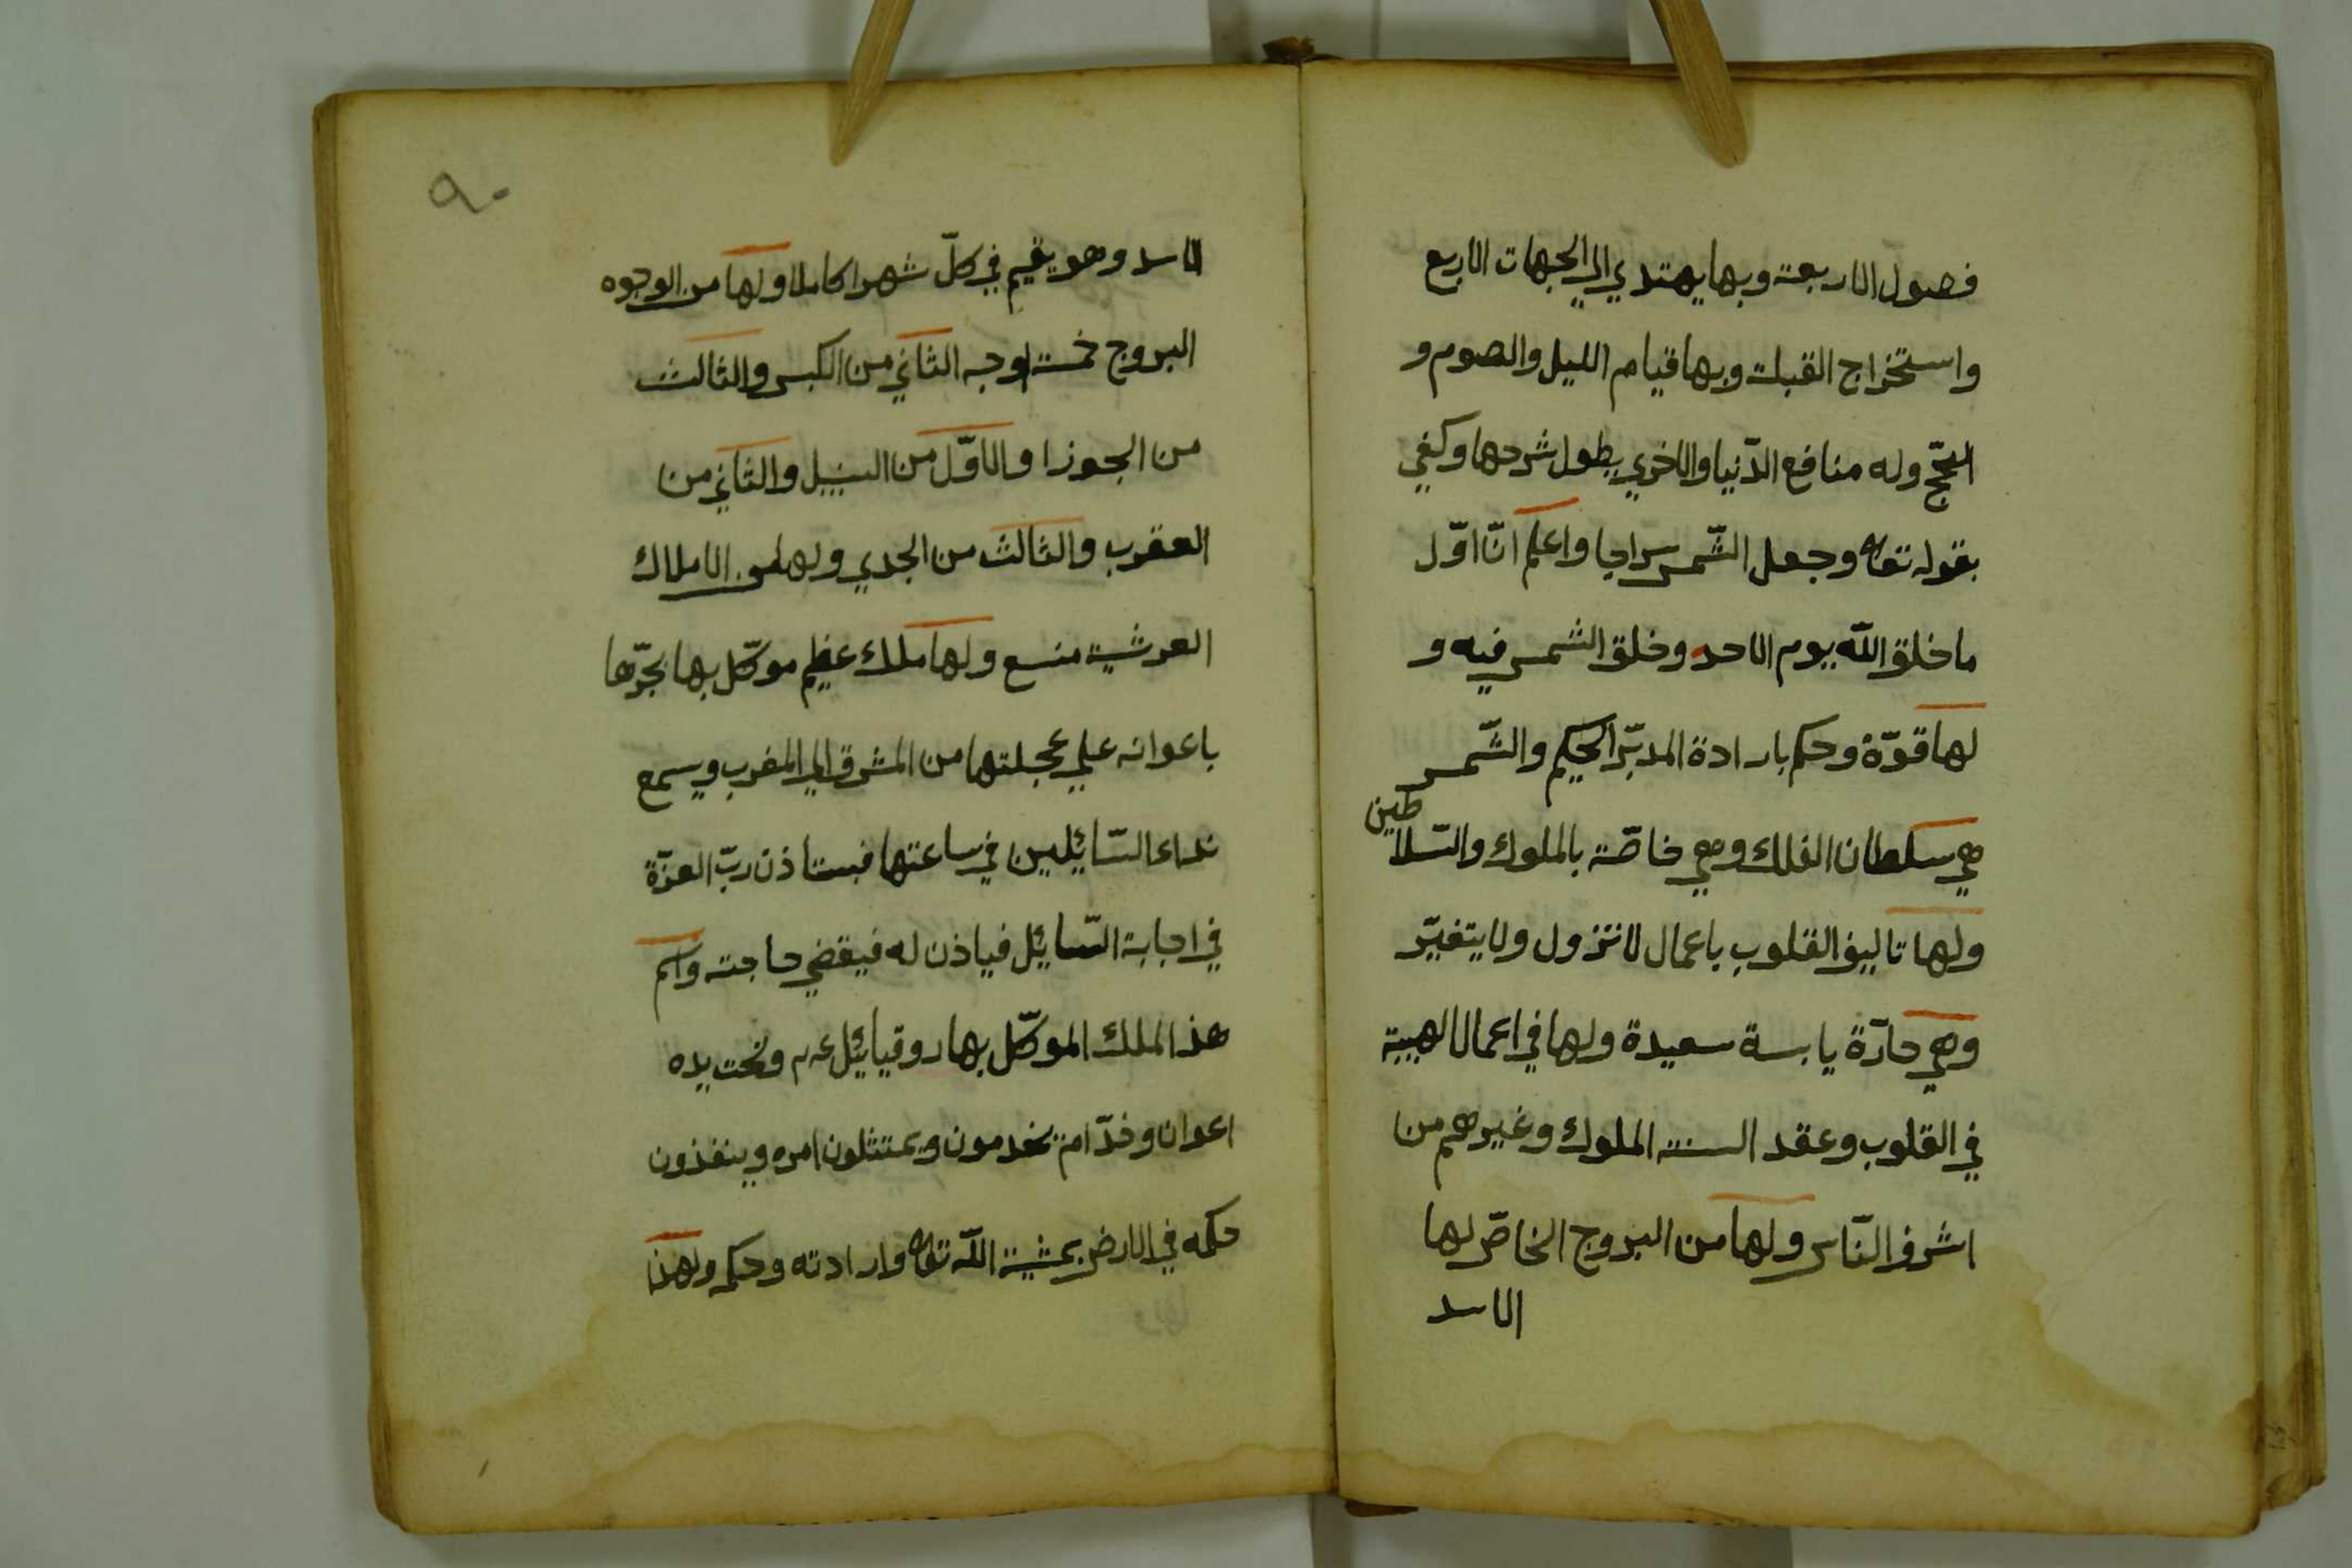 فصول الاربعة وبها يهتدي الي الجهات الاربع
واستخراج القبلة وبها قيام الليل والصوم و
الحجّ وله منافع الدّنيا والاخري يطول شرحها وكفي
بقوله تعا وجعل الشّمس سراجا واعلم انّ اوّل
ما خلق اللّه يوم الاحد وخلق الشمس فيه و
لها قوّة وحكم بارادة المدبّر الحكيم والشّمس
هي سلطان الفلك وهي خاصّة بالملوك والسّلاطين
ولها تاليف القلوب باعمال لا تزول ولا يتغيّر
وهي حارّة يابسة سعيدة ولها في اعمال الهيبة
في القلوب وعقد السنة الملوك وغيرهم من
اشرف النّاس ولها من البروج الخاصّ لها
الاسد
٩٠
الاسد وهو يقيم في كلّ شهرا كاملا ولها من الوجوه
البروج خمسة اوجه الثاني من الكبس والثالث
من الجوزا والاوّل من السنبل والثاني من
العقرب والثالث من الجدي ولها من الاملاك
العرشية منسع ولها ملك عظيم موكّل بها يجرّها
باعوانه علي عجلتها من المشرق الي المغرب ويسمع
نداء السّائلين في ساعتها فيستاذن ربّ العزّة
في اجابة السّائل فياذن له فيقضي حاجته واسم
هذا الملك الموكّل بها روقيائل عم وتحت يده
اعوان وخدّامة يخدمون ويمتثلون امره وينفذون
حكمه في الارض بمشية اللّه تعا وارادته وحكمه ولهذا